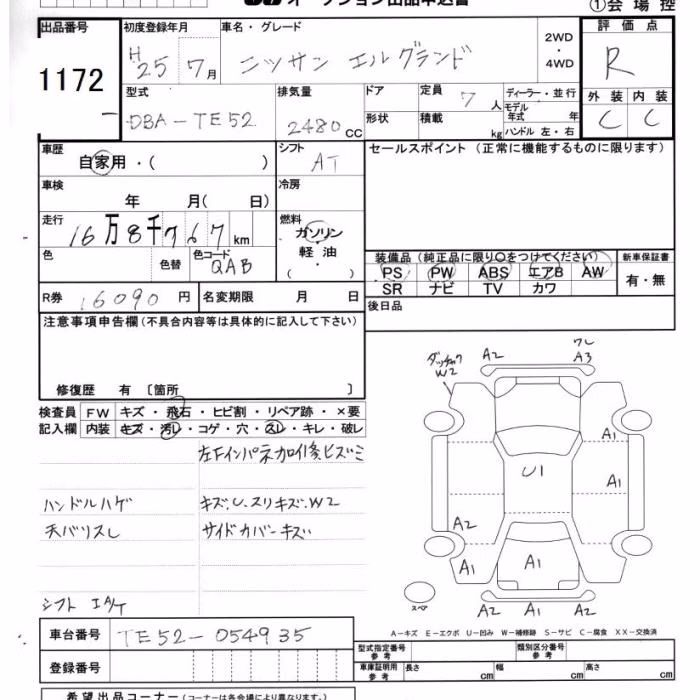 オークション出品申込書
①会場控
出品番号 初度登録年月 車名・グレード 2WD ・ 4WD 評価点
1172 H25 7月 ニッサン エルグランド R
型式 排気量 ドア 定員 7人 ディーラー・並行 外装 内装
DBA-TE52 2480cc 形状 積載 kg モデル年式 年 ハンドル 左・右 C C
車歴 シフト セールスポイント (正常に機能するものに限ります)
自家用・( ) AT
車検 冷房
年 月( 日)
走行 燃料
16万8千767km ガソリン・軽油・( )
色 色替 色コード QAB
装備品(純正品に限り○をつけてください) 新車保証書
PS PW ABS エアB AW 有・無
SR ナビ TV カワ
R券 16090円 名変期限 月 日 後日品
注意事項申告欄(不具合内容等は具体的に記入して下さい)
修復歴 有 〔箇所 〕
検査員 FW キズ・飛石・ヒビ割・リペア跡・×要
記入欄 内装 キズ・汚レ・コゲ・穴・スレ・キレ・破レ
ハンドルハゲ キズ.U.スリキズ.W2
天バリスレ サイドカバーキズ
シフト
W2 A2 A3
A1
U1 A1
A2
A1 A1 A1
スペア A2 A1 A2
A-キズ E-エクボ U-凹み W-補修跡 S-サビ C-腐食 XX-交換済
車台番号 TE52-054935
型式指定番号 参考 類別区分番号 参考
登録番号
車庫証明用 参考 長さ cm 幅 cm 高さ cm
希望出品コーナー(コーナーは各会場により異なります。)